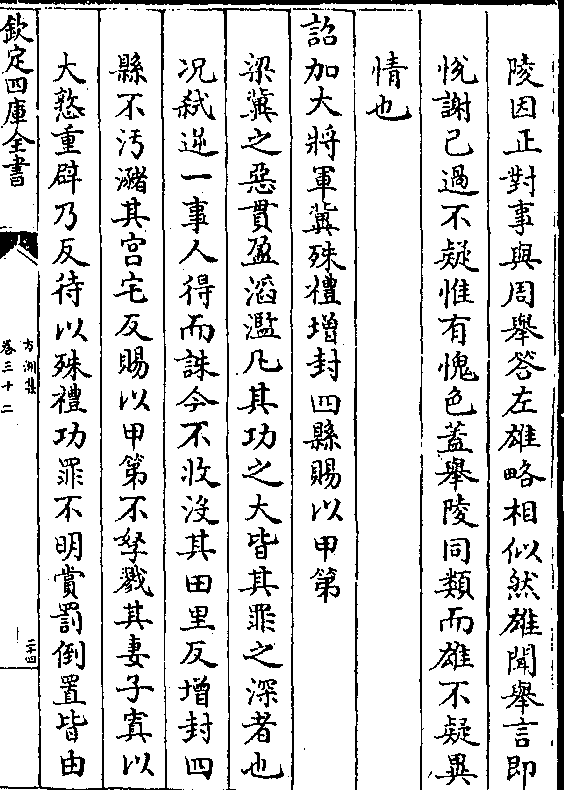 陵因正對事與周舉答左雄略相似然雄聞舉言即
恱謝已過不疑惟有愧色蓋舉陵同類而雄不疑異
情也
詔加大將軍冀殊禮增封四縣賜以甲第
梁冀之惡貫盈滔濫凡其功之大皆其罪之深者也
况弑逆一事人得而誅今不收沒其田里反增封四
縣不汚瀦其宫宅反賜以甲第不孥戮其妻子寘以
大憝重辟乃反待以殊禮功罪不明賞罰倒置皆由
欽定四庫全書
方洲集
卷三十二
二十四